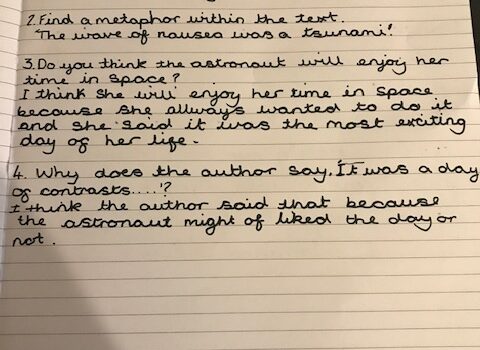 2. Find a metaphor within the text.
'The wave of nausea was a tsunami.'
3. Do you think the astronaut will enjoy her
time in space?
I think she will enjoy her time in space
because she always wanted to do it
and she said it was the most exciting
day of her life.
4. Why does the author say, 'It was a day
of contrasts....'?
I think the author said that because
the astronaut might of liked the day or
not.